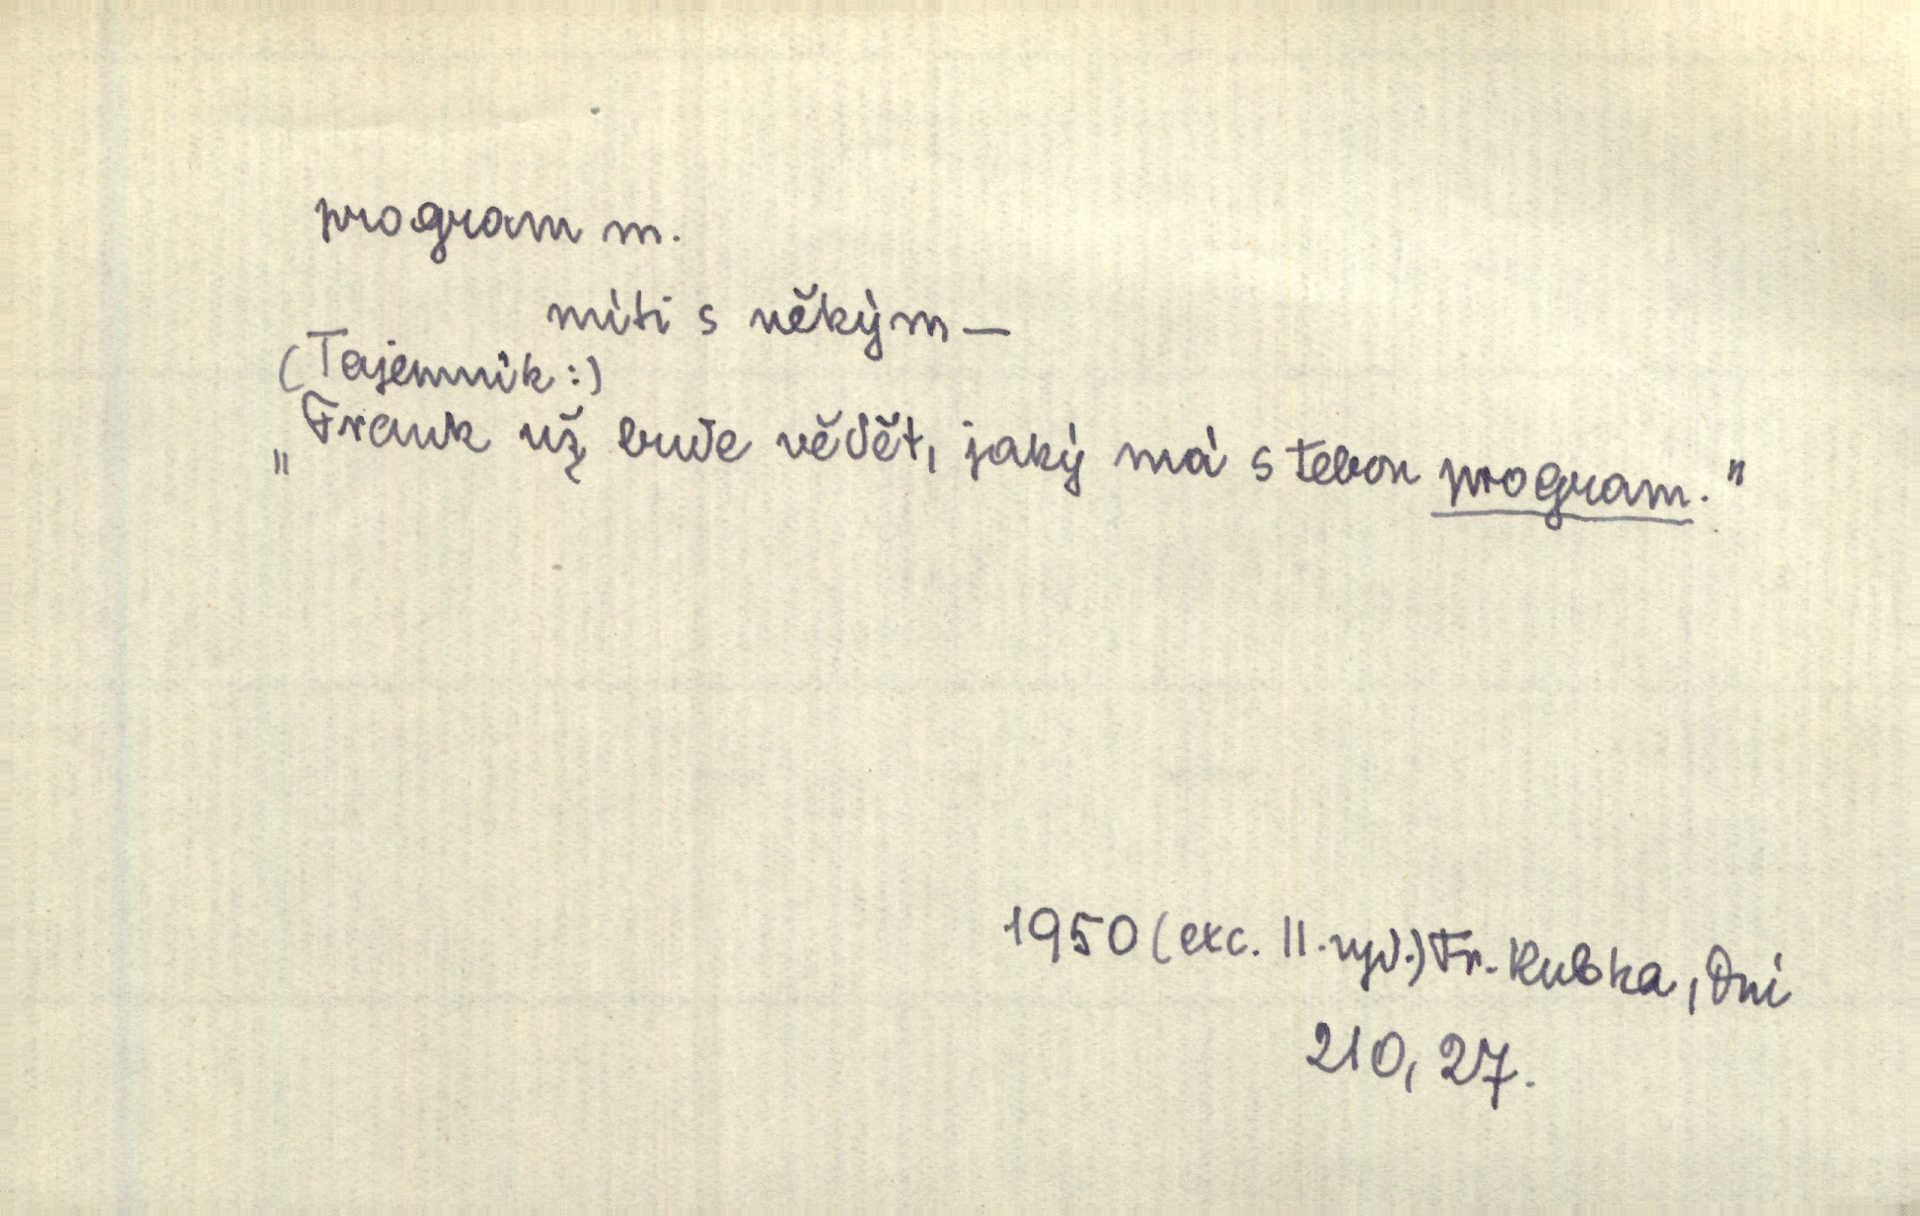 program m.
míti s někým —
(Tajemník:)
„Frank už bude vědět, jaký má s tebou program."
1950 (exc. II. vyd.) Fr. Kubka, Dni
210, 27.